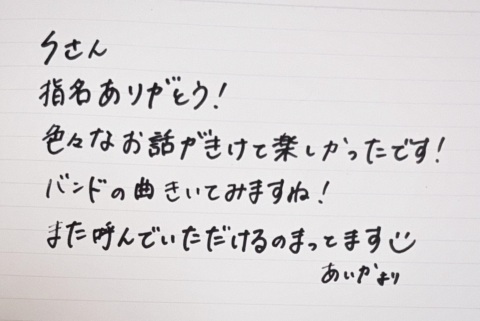 さん
指名ありがとう!
色々なお話がきけて楽しかったです!
バンドの曲きいてみますね!
また呼んでいただけるのまってます
あいかより